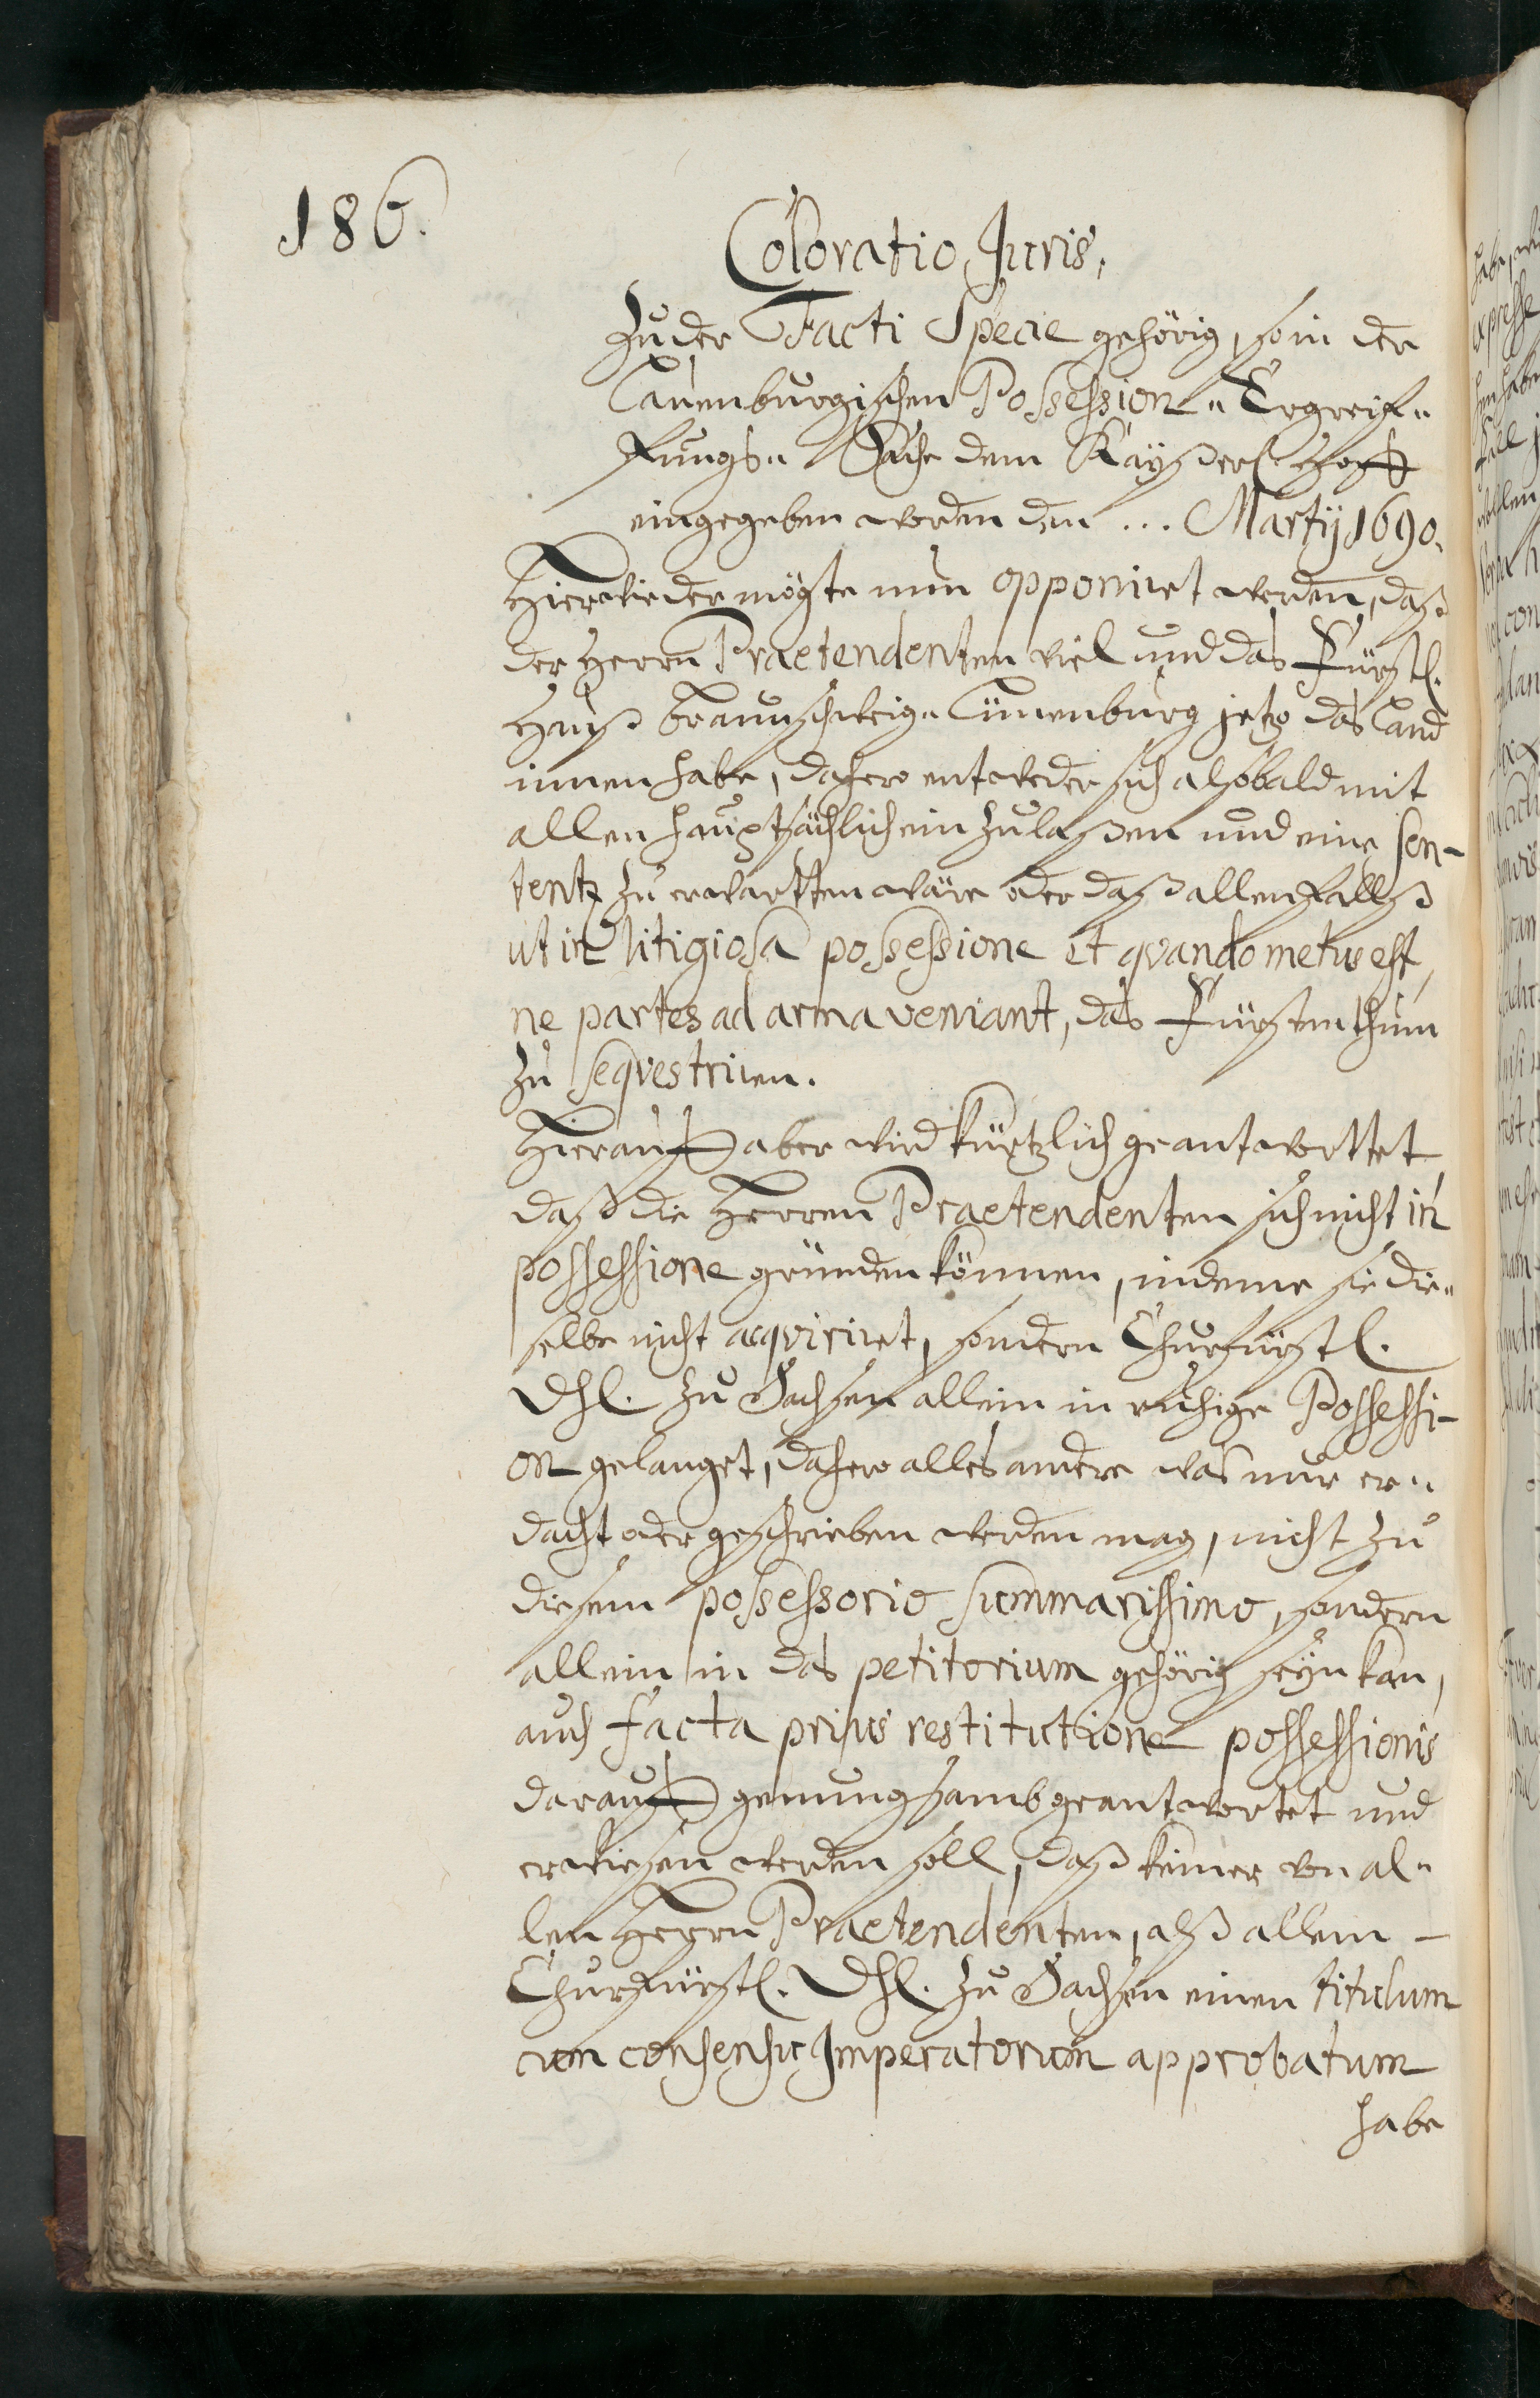 186.
Coloratio Juris,
Zu der Facti Specie gehörig, so in der
Lauenburgischen Possession- Ergreif-
fungs- Sache dem Kayßerl. Hoff
eingegeben worden den ... Martij 1690.
Hierwieder mögte nun opponiret werden, daß
der Herrn Praetendenten viel und das Fürstl.
Hauß Braunschweig- Lünenburg jetzo das Land
innen habe, dahero entweder sich alsobald mit
allen hauptsächlich ein zulaßen und eine sen-
tentz zu erwartten wäre oder daß allenfallß
ut in litigiosa possessione et qvando metus est,
ne partes ad arma veniant, das Fürstenthum
zu seqvestriren.
Hierauff aber wird kürtzlich geantworttet
daß die Herren Praetendenten sich nicht in
possessione gründen können, indeme sie die-
selbe nicht acqviriret, sondern Churfürstl.
Dhl. zu Sachsen allein in ruhige Possessi-
on gelanget, dahero alles andere was nur er-
dacht oder geschrieben werden mag, nicht zu
diesem possessorio summarissimo, sondern
allein in das petitorium gehörig seyn kan,
auch facta prius restitutione possessionis
darauff genungsamb geantwortet und
erwiesen werden soll, daß keiner von al-
len Herrn Praetendenten, alß allein -
Churfürstl. Dhl. zu Sachsen einen titulum
cum consensu Imperatorum approbatum
habe